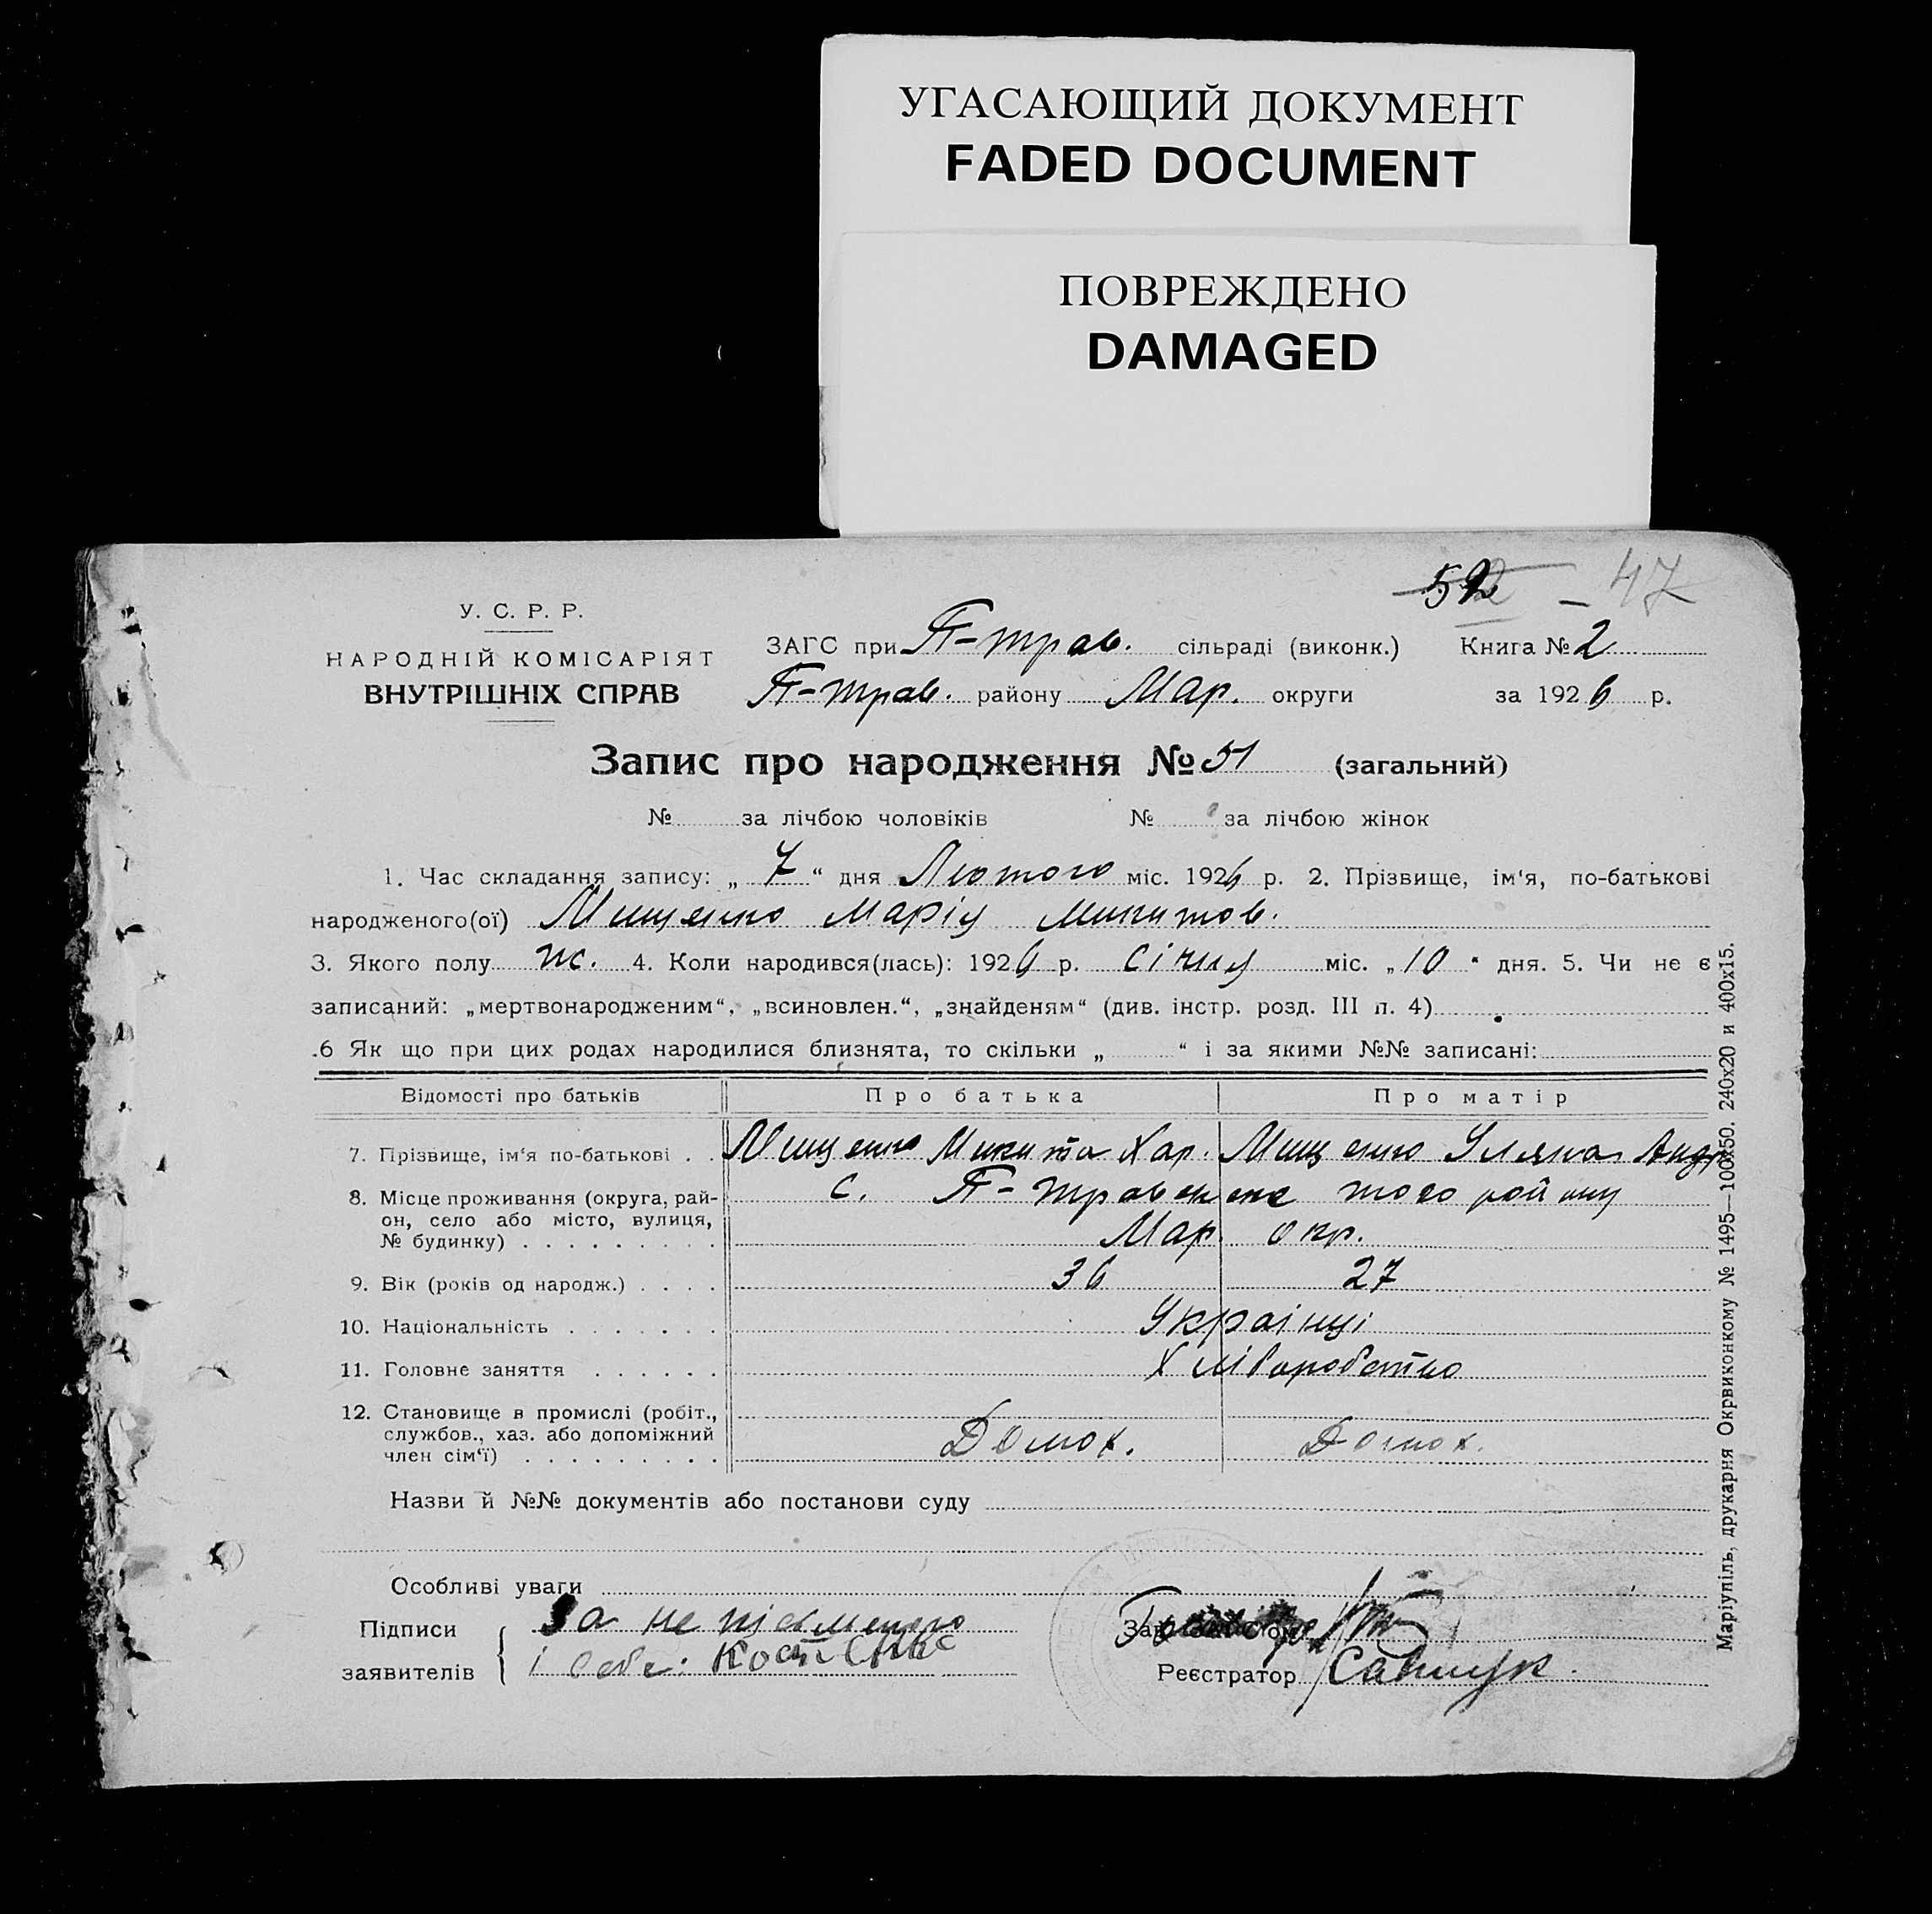 УГАСАЮЩИЙ ДОКУМЕНТ
FADED DOCUMENT
ПОВРЕЖДЕНО
DAMAGED
52 – 47
У. С. Р. Р.
НАРОДНІЙ КОМІСАРІЯТ
ВНУТРІШНІХ СПРАВ
ЗАГС при П-трав. сільраді (виконк.) Книга № 2
П-трав. району Мар. округи за 1926 р.
Запис про народження № 51 (загальний)
№ за лічбою чоловіків № за лічбою жінок
1. Час складання запису: „ 7 “ дня Лютого міс. 1926 р. 2. Прізвище, ім‘я, по-батькові
народженого(ої) Мищенко Марія Микитов.
3. Якого полу ж. 4. Коли народився(лась): 1926 р. січня міс. „ 10 “ дня. 5. Чи не є
записаний: „мертвонародженим“, „всиновлен.“, „знайденям“ (див. інстр. розд. III п. 4)
.6 Як що при цих родах народилися близнята, то скільки „ “ і за якими №№ записані:
Відомості про батьків Про батька Про матір
7. Прізвище, ім‘я по-батькові . . Мищенко Микита Хар. Мищенко Уляна Андр
8. Місце проживання (округа, рай- с. П-травенене того району
он, село або місто, вулиця,
№ будинку) . . . . . . . . . Мар. окр.
9. Вік (років од народж.) . . . . 36 27
10. Національність . . . . . . . Українці
11. Головне заняття . . . . . . Хліборобство
12. Становище в промислі (робіт.,
службов., хаз. або допоміжний
член сім‘ї) . . . . . . . . . Домох. Домох.
Назви й №№ документів або постанови суду
Особливі уваги
Підписи За не письменого
заявителів і себе:
Реєстратор
Маріупіль, друкарня Окрвиконкому № 1495—100х50. 240х20 и 400х15.